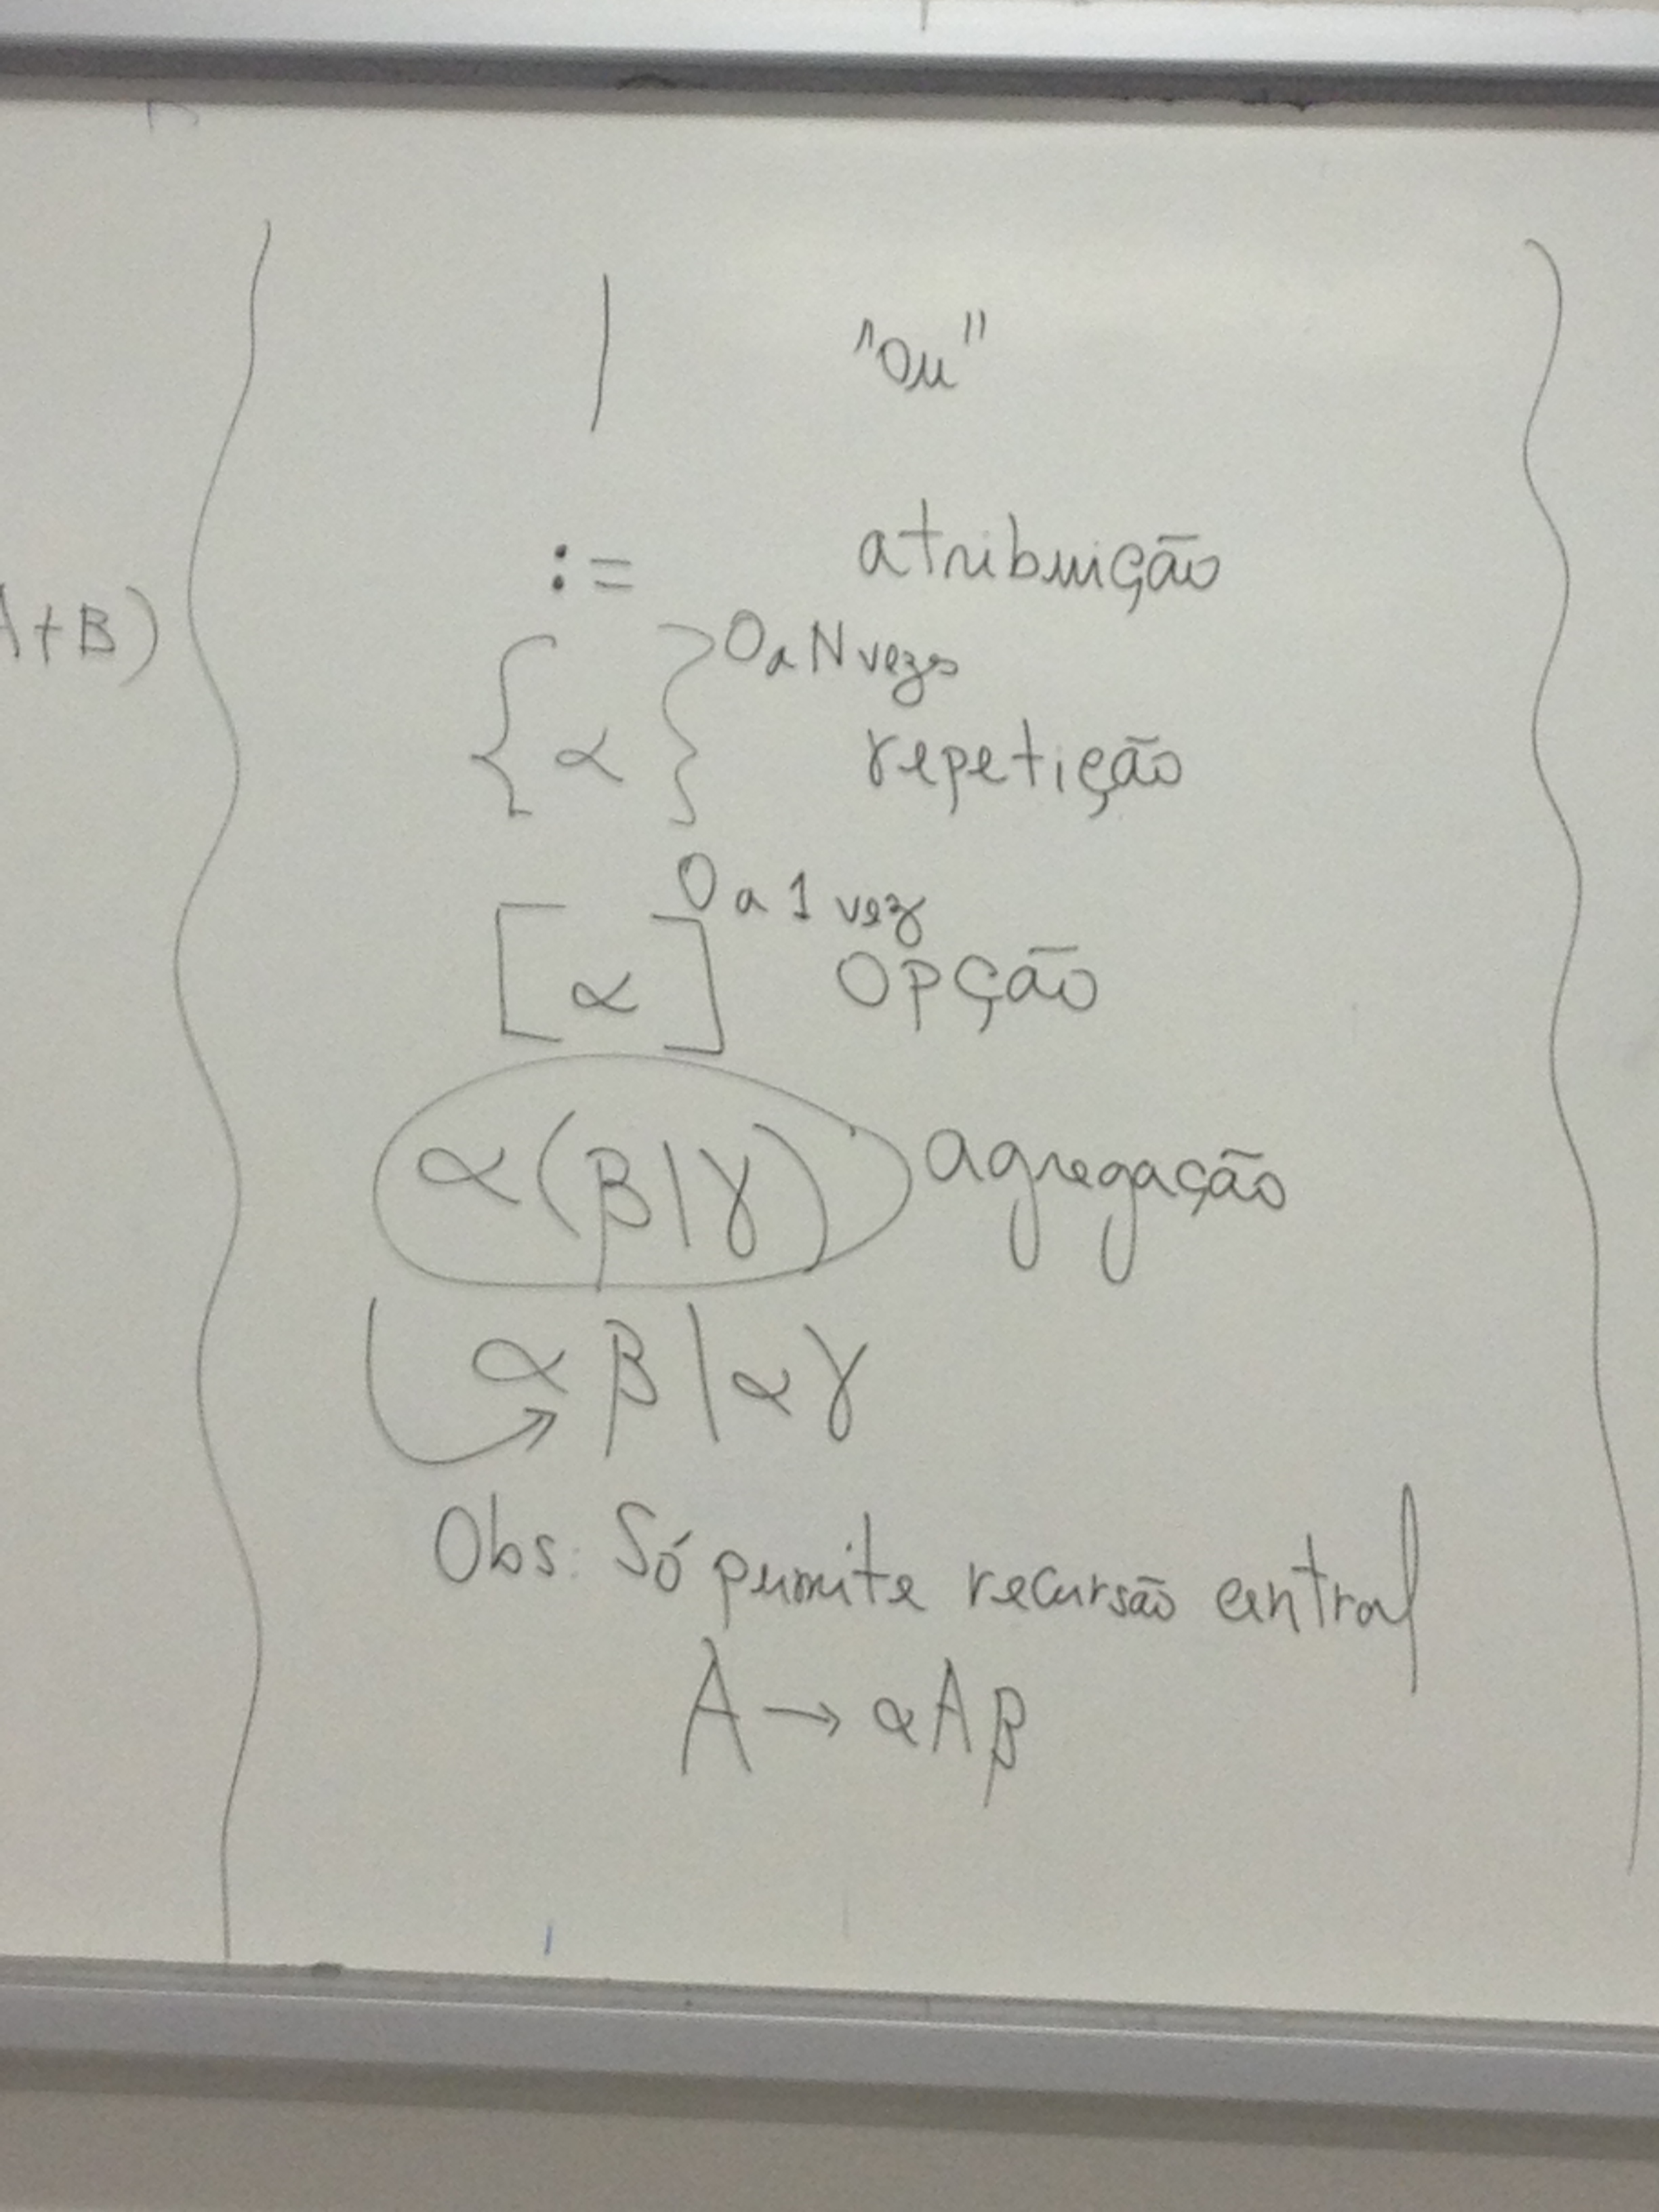 A+B)
| "ou"
:= atribuição
{ α } 0 a N vezes repetição
[ α ] 0 a 1 vez opção
α(β|γ) agregação
αβ|αγ
Obs: Só permite recursão central
A → αAβ